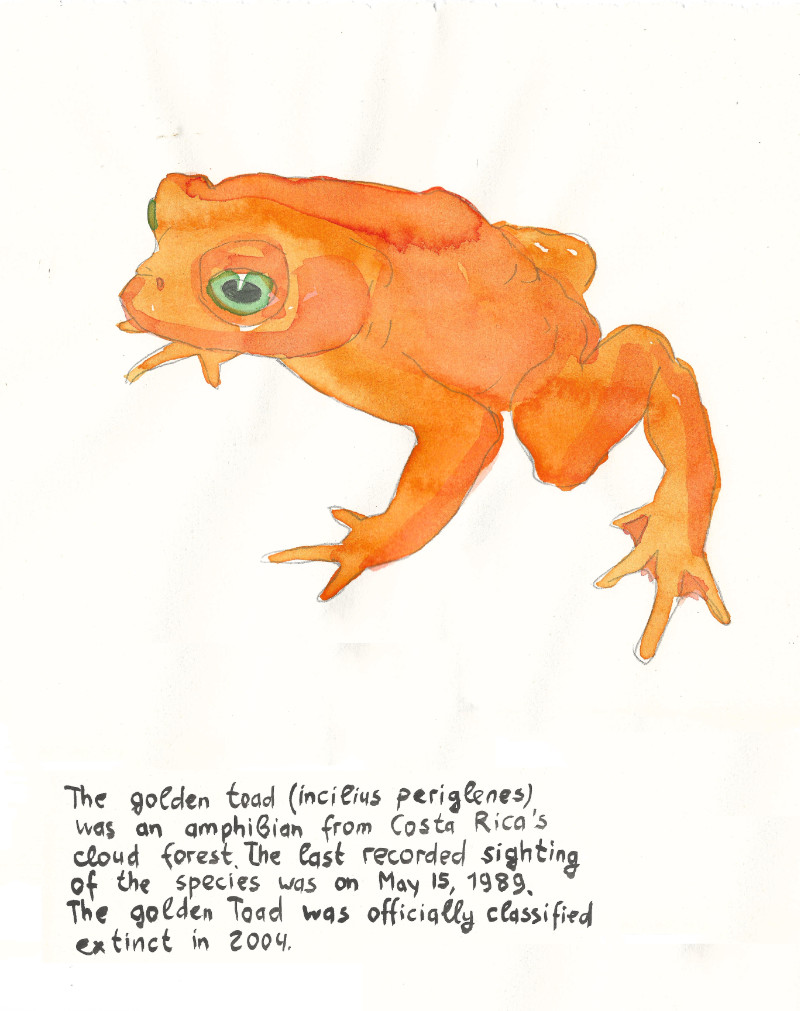 The golden toad (incilius periglenes)
was an amphibian from Costa Rica's
cloud forest. The last recorded sighting
of the species was on May 15, 1989.
The golden Toad was officially classified
extinct in 2004.